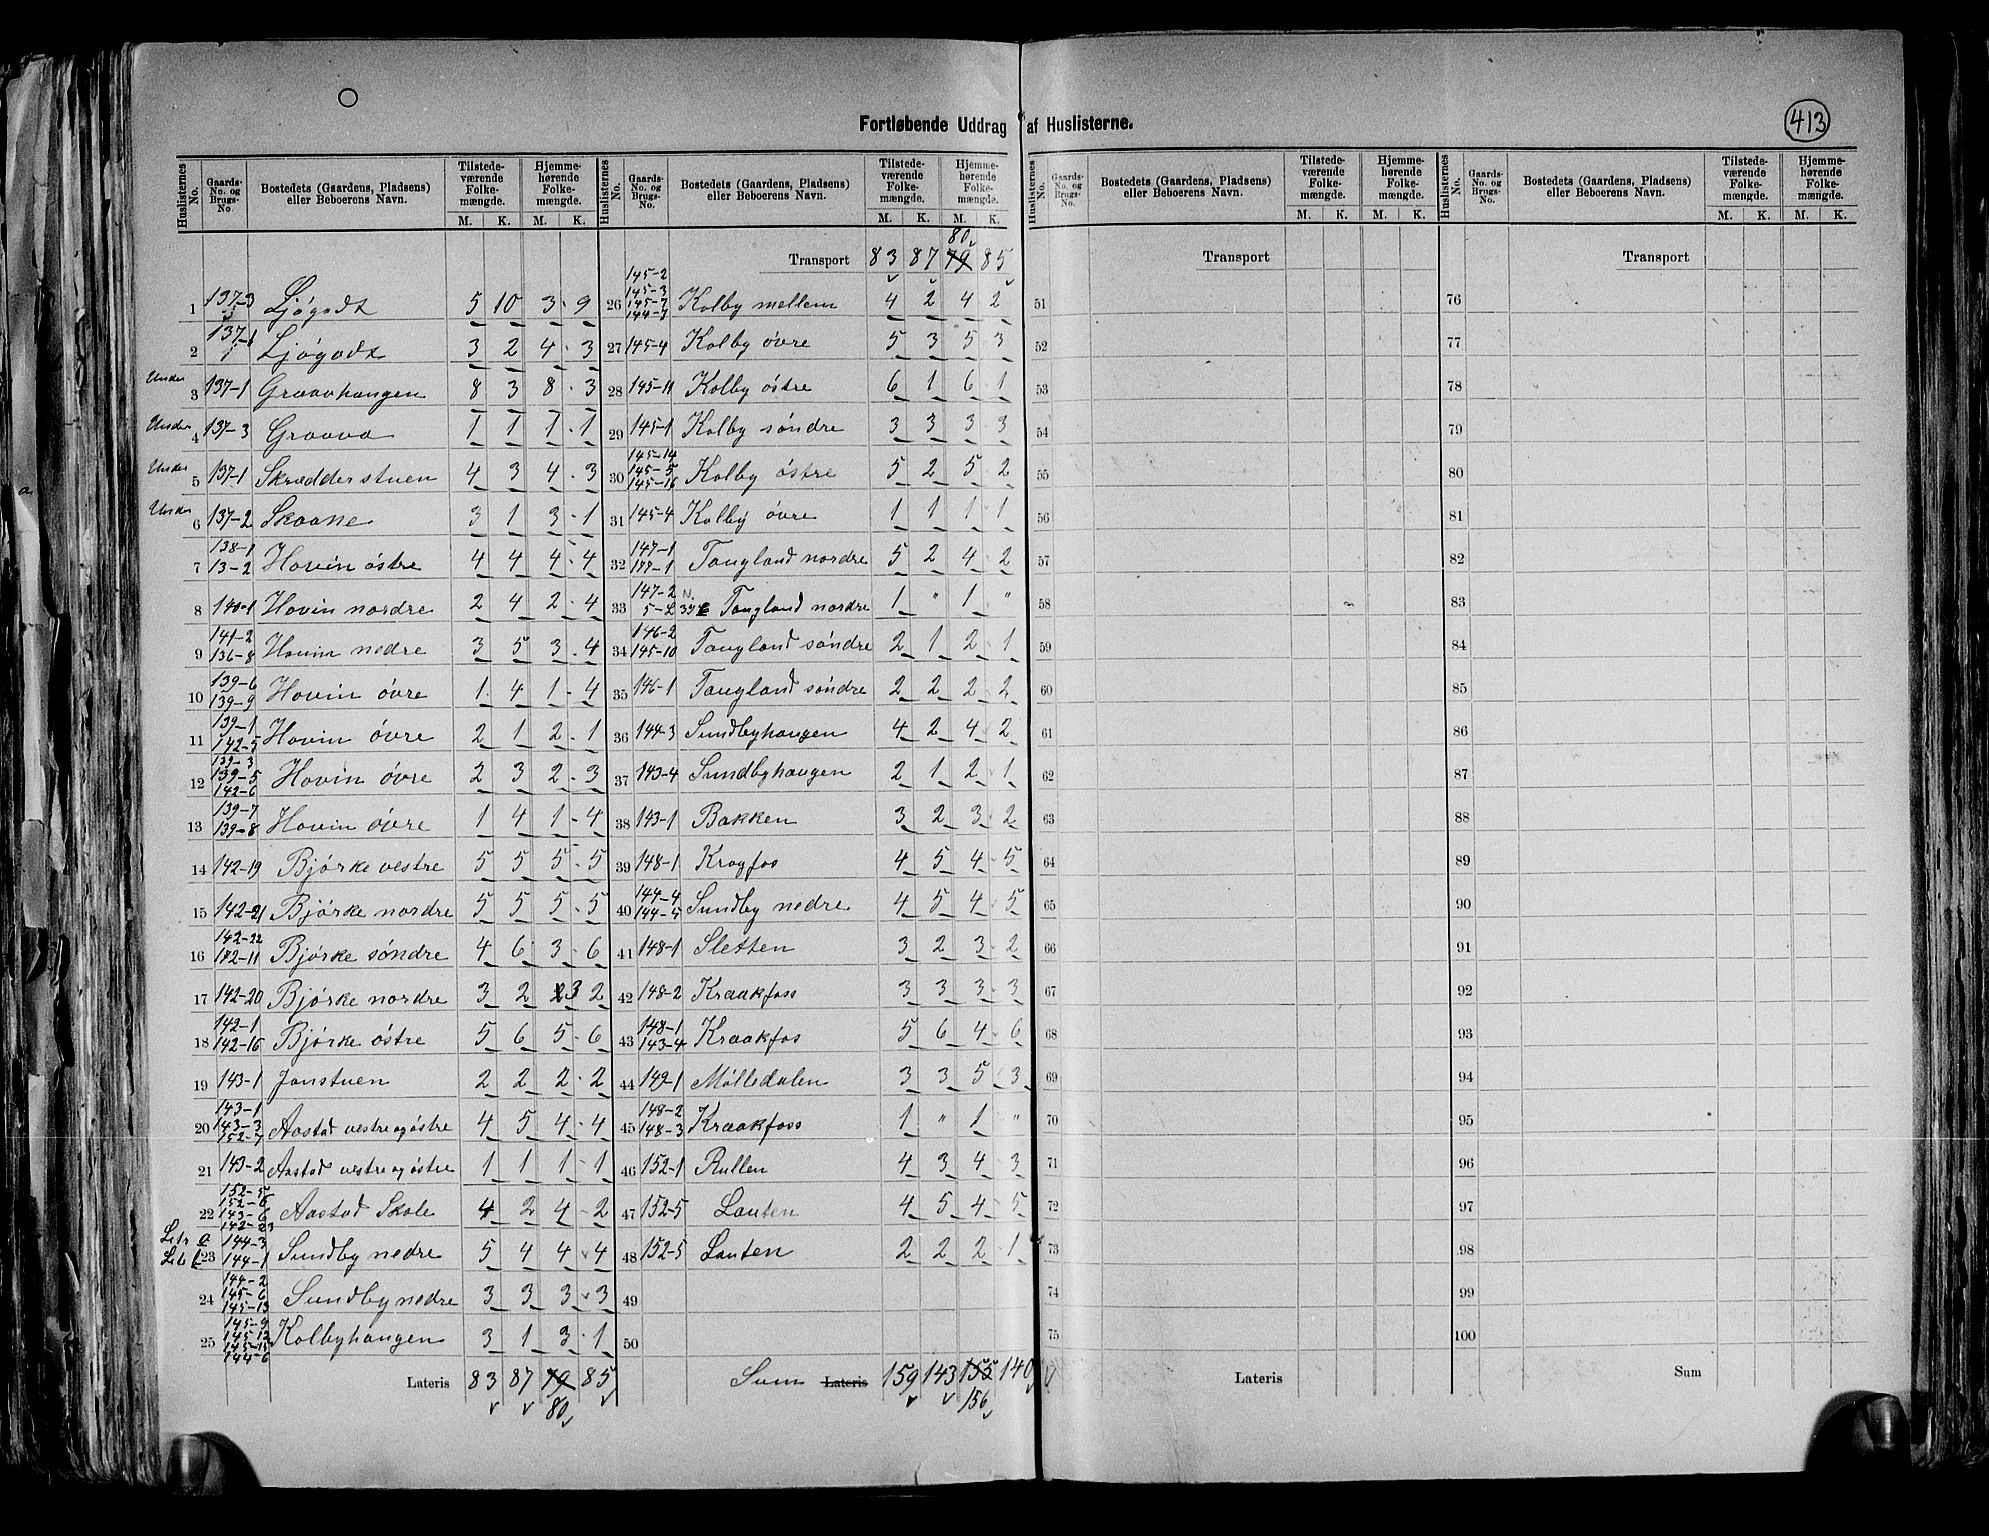 413
Fortløbende Uddrag af Huslisterne.
Huslisternes No. | Gaards-No. og Brugs-No. | Bostedets (Gaardens, Pladsens) eller Beboerens Navn. | Tilstedeværende Folkemængde. M. K. | Hjemmehørende Folkemængde. M. K.
1 137-3 Ljøgodt 5 10 3 9
2 137-1 Ljøgodt 3 2 4 3
Under 3 137-1 Graavhaugen 8 3 8 3
Under 4 137-3 Graava 1 1 1 1
Under 5 137-1 Skrædderstuen 4 3 4 3
Under 6 137-2 Skaane 3 1 3 1
7 138-1 13-2 Hovin østre 4 4 4 4
8 140-1 Hovin nordre 2 4 2 4
9 141-2 136-8 Hovin nedre 3 5 3 4
10 139-6 139-9 Hovin øvre 1 4 1 4
11 139-1 142-5 Hovin øvre 2 1 2 1
12 139-3 139-5 142-6 Hovin øvre 2 3 2 3
13 139-7 139-8 Hovin øvre 1 4 1 4
14 142-19 Bjørke vestre 5 5 5 5
15 142-21 Bjørke nordre 5 5 5 5
16 142-22 142-11 Bjørke søndre 4 6 3 6
17 142-20 Bjørke nordre 3 2 3 2
18 142-1 142-16 Bjørke østre 5 6 5 6
19 143-1 Jonstuen 2 2 2 2
20 143-1 143-3 152-7 Aastad vestre og østre 4 5 4 4
21 143-2 Aastad vestre og østre 1 1 1 1
22 152-5 152-6 143-6 142-23 Aastad Skole 4 2 4 2
Litr a
Litr 23 144-3 144-1 Sundby nedre 5 4 4 4
24 144-2 145-6 145-13 Sundby nedre 3 3 3 3
25 145-9 145-12 145-15 144-6 Kolbyhaugen 3 1 3 1
Lateris 83 87 79 85
80
Huslisternes No. | Gaards-No. og Brugs-No. | Bostedets (Gaardens, Pladsens) eller Beboerens Navn. | Tilstedeværende Folkemængde. M. K. | Hjemmehørende Folkemængde. M. K.
80
Transport 83 87 79 85
26 145-2 145-3 145-7 144-7 Kolby mellem 4 2 4 2
27 145-4 Kolby øvre 5 3 5 3
28 145-11 Kolby østre 6 1 6 1
29 145-1 Kolby søndre 3 3 3 3
30 145-14 145-5 145-16 Kolby østre 5 2 5 2
31 145-4 Kolby øvre 1 1 1 1
32 147-1 177-1 Taugland nordre 5 2 4 2
33 147-2 Taugland nordre 1 " 1 "
34 146-2 145-10 Taugland søndre 2 1 2 1
35 146-1 Taugland søndre 2 2 2 2
36 144-3 Sundbyhaugen 4 2 4 2
37 143-4 Sundbyhaugen 2 1 2 1
38 143-1 Bakken 3 2 3 2
39 148-1 Kragfos 4 5 4 5
40 144-4 144-5 Sundby nedre 4 5 4 5
41 148-1 Sletten 3 2 3 2
42 148-2 Kraakfoss 3 3 3 3
43 148-1 143-4 Kraakfos 5 6 4 6
44 149-1 Mølledalen 3 3 5 3
45 148-2 148-3 Kraakfoss 1 " 1 "
46 152-1 Rullen 4 3 4 3
47 152-5 Lauten 4 5 4 5
48 152-5 Lauten 2 2 2 1
49
50
Sum Lateris 159 143 155 140
156
Huslisternes No. | Gaards-No. og Brugs-No. | Bostedets (Gaardens, Pladsens) eller Beboerens Navn. | Tilstedeværende Folkemængde. M. K. | Hjemmehørende Folkemængde. M. K.
Transport
51
52
53
54
55
56
57
58
59
60
61
62
63
64
65
66
67
68
69
70
71
72
73
74
75
Lateris
Huslisternes No. | Gaards-No. og Brugs-No. | Bostedets (Gaardens, Pladsens) eller Beboerens Navn. | Tilstedeværende Folkemængde. M. K. | Hjemmehørende Folkemængde. M. K.
Transport
76
77
78
79
80
81
82
83
84
85
86
87
88
89
90
91
92
93
94
95
96
97
98
99
100
Sum